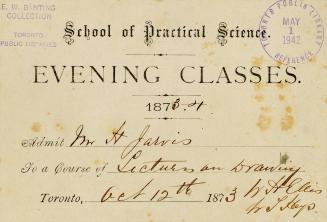 E. W. BANTING
COLLECTION
TORONTO
PUBLIC LIBRARIES
TORONTO PUBLIC LIBRARY
MAY
1
1942
REFERENCE
School of Practical Science.
EVENING CLASSES.
1873.4
Admit Mr H Jarvis
To a Course of Lectures on Drawing
Toronto, Oct 12th 1873 W H Ellis